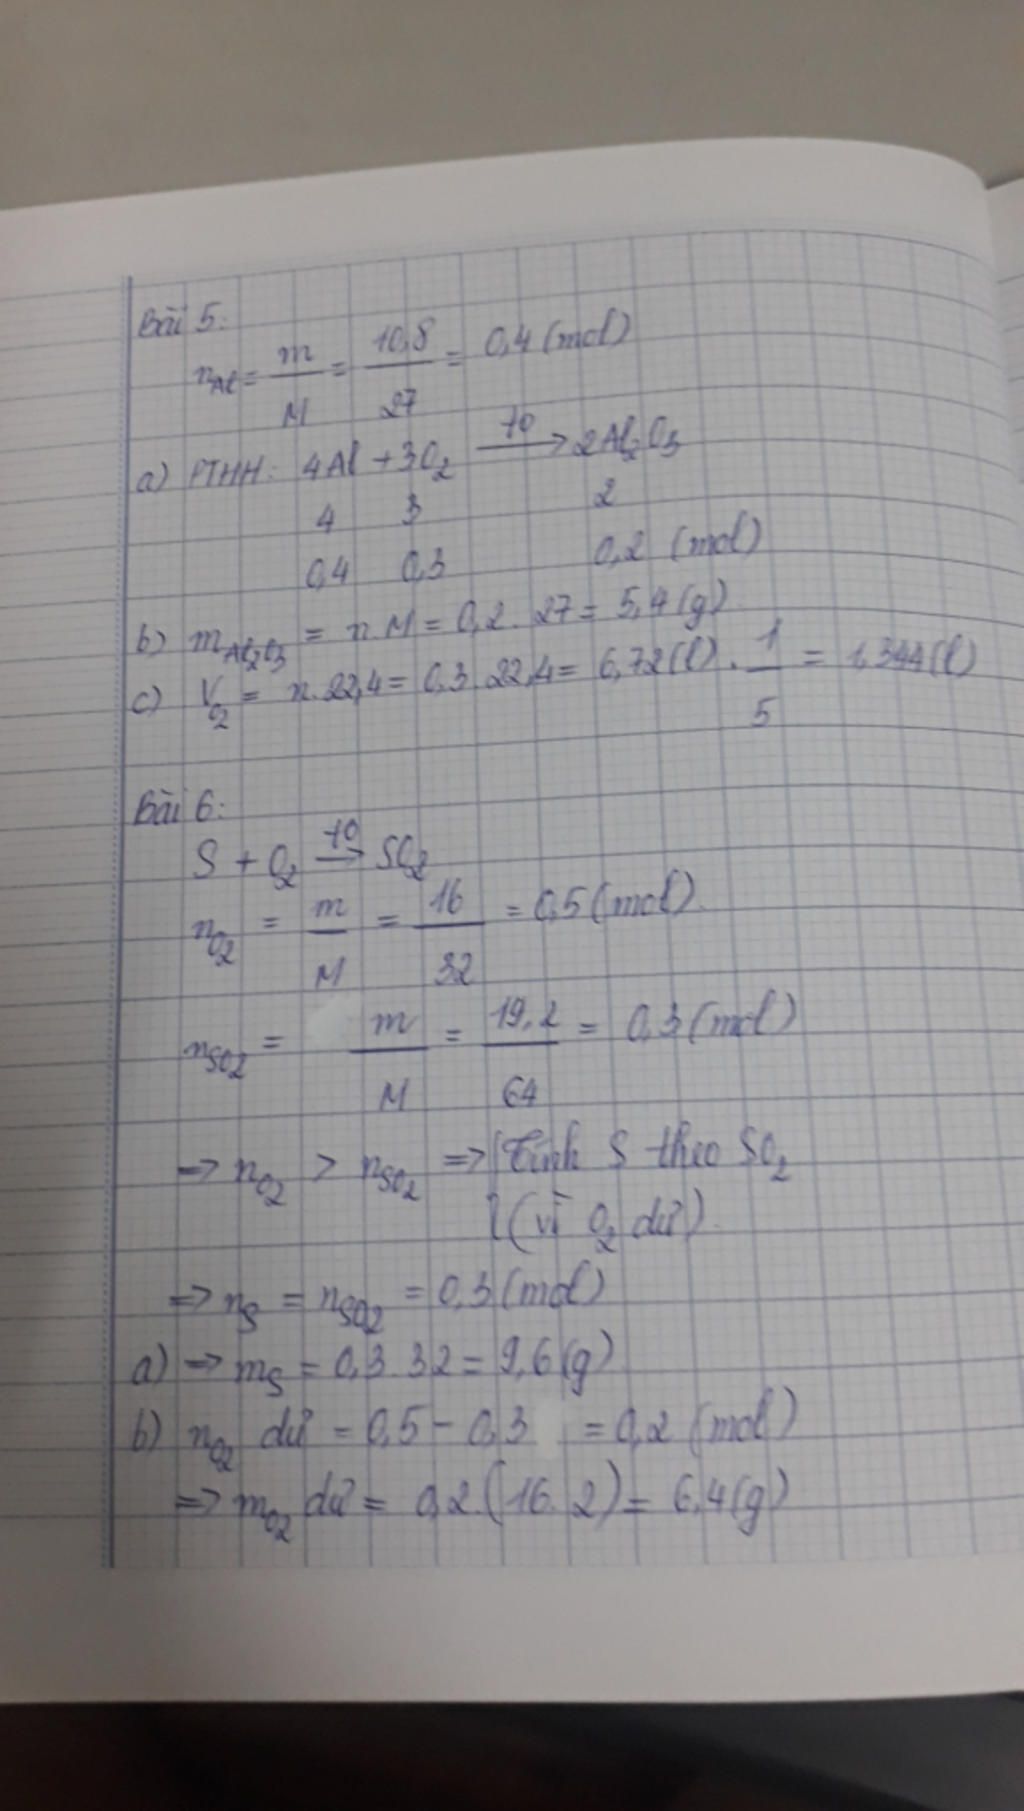 Bài 5:
nAl = m/M = 10,8/27 = 0,4 (mol)
a) PTHH: 4Al + 3O2 t0→ 2Al2O3
4 3 2
0,4 0,3 0,2 (mol)
b) mAl2O3 = n.M = 0,2.27 = 5,4 (g)
c) VO2 = n.22,4 = 0,3.22,4 = 6,72 (l) . 1/5 = 1,344 (l)
Bài 6:
S + O2 t0→ SO2
nO2 = m/M = 16/32 = 0,5 (mol)
nSO2 = m/M = 19,2/64 = 0,3 (mol)
=> nO2 > nSO2 => Tính S theo SO2
(vì O2 dư)
=> nS = nSO2 = 0,3 (mol)
a) => mS = 0,3.32 = 9,6 (g)
b) nO2 dư = 0,5 - 0,3 = 0,2 (mol)
=> mO2 dư = 0,2.(16.2) = 6,4 (g)